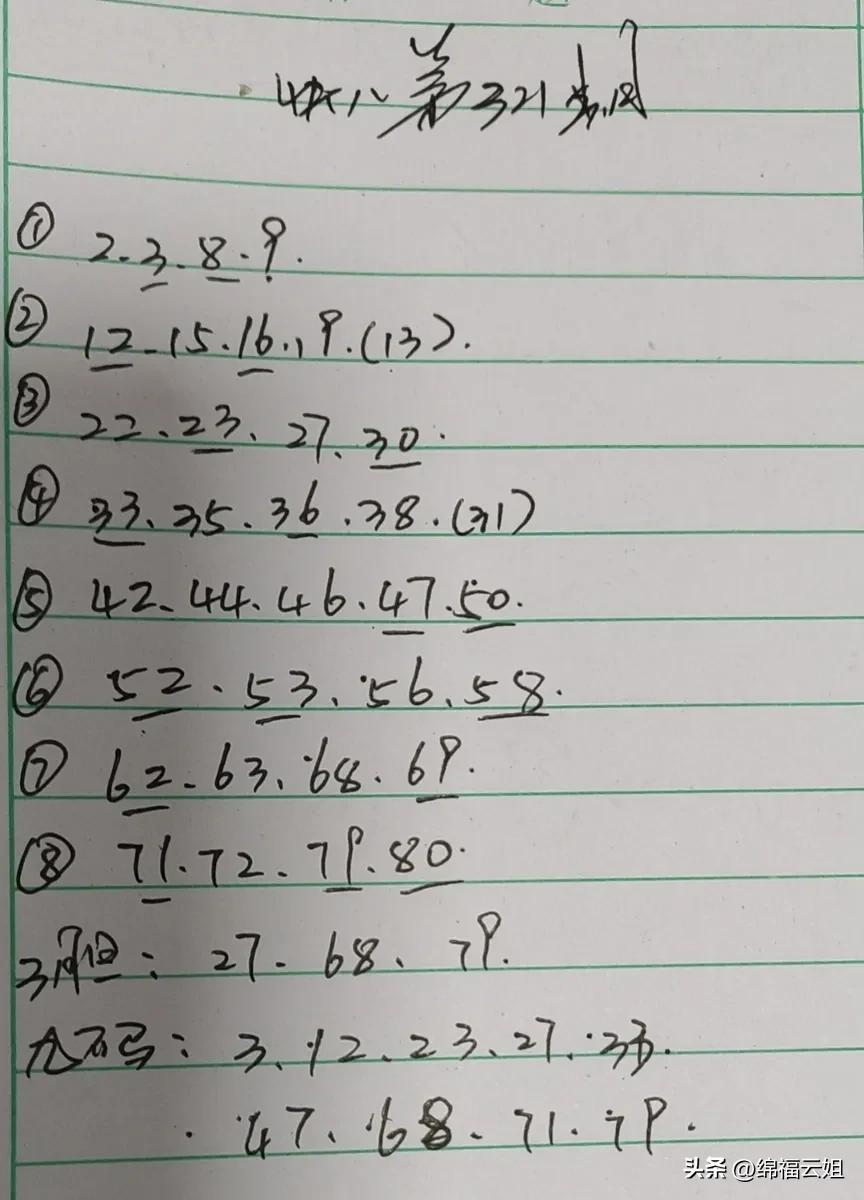 快八第321期
① 2.3.8.9.
② 12.15.16.19.(13).
③ 22.23.27.30.
④ 33.35.36.38.(31)
⑤ 42.44.46.47.50.
⑥ 52.53.56.58.
⑦ 62.63.68.69.
⑧ 71.72.79.80.
三胆：27.68.79.
九石马：3.12.23.27.33.
.47.68.71.79.
头条 @绵福云姐